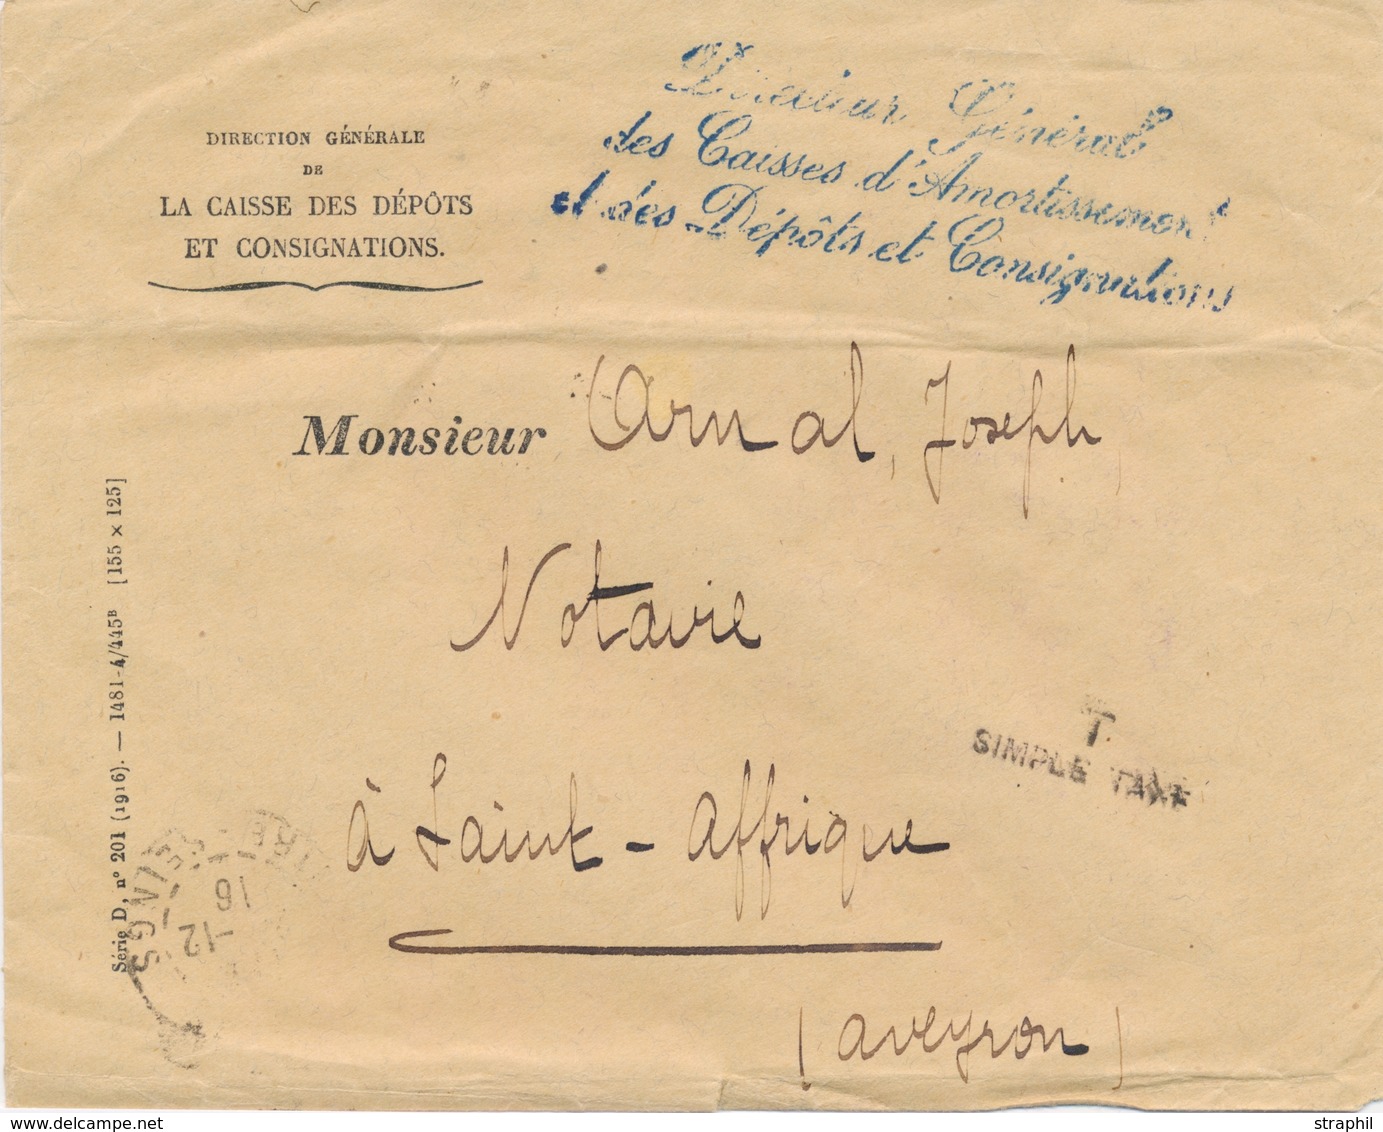 Directeur Général
des Caisses d'Amortissement
et des Dépôts et Consignations
DIRECTION GÉNÉRALE
DE
LA CAISSE DES DÉPÔTS
ET CONSIGNATIONS.
Monsieur Arnal, Joseph,
Notaire
à Saint-Affrique
(Aveyron)
T
SIMPLE TAXE
Série D, nº 201 (1916). — 1481-4/445ᴮ [155 × 125]
-12
16
www.delcampe.net
straphil